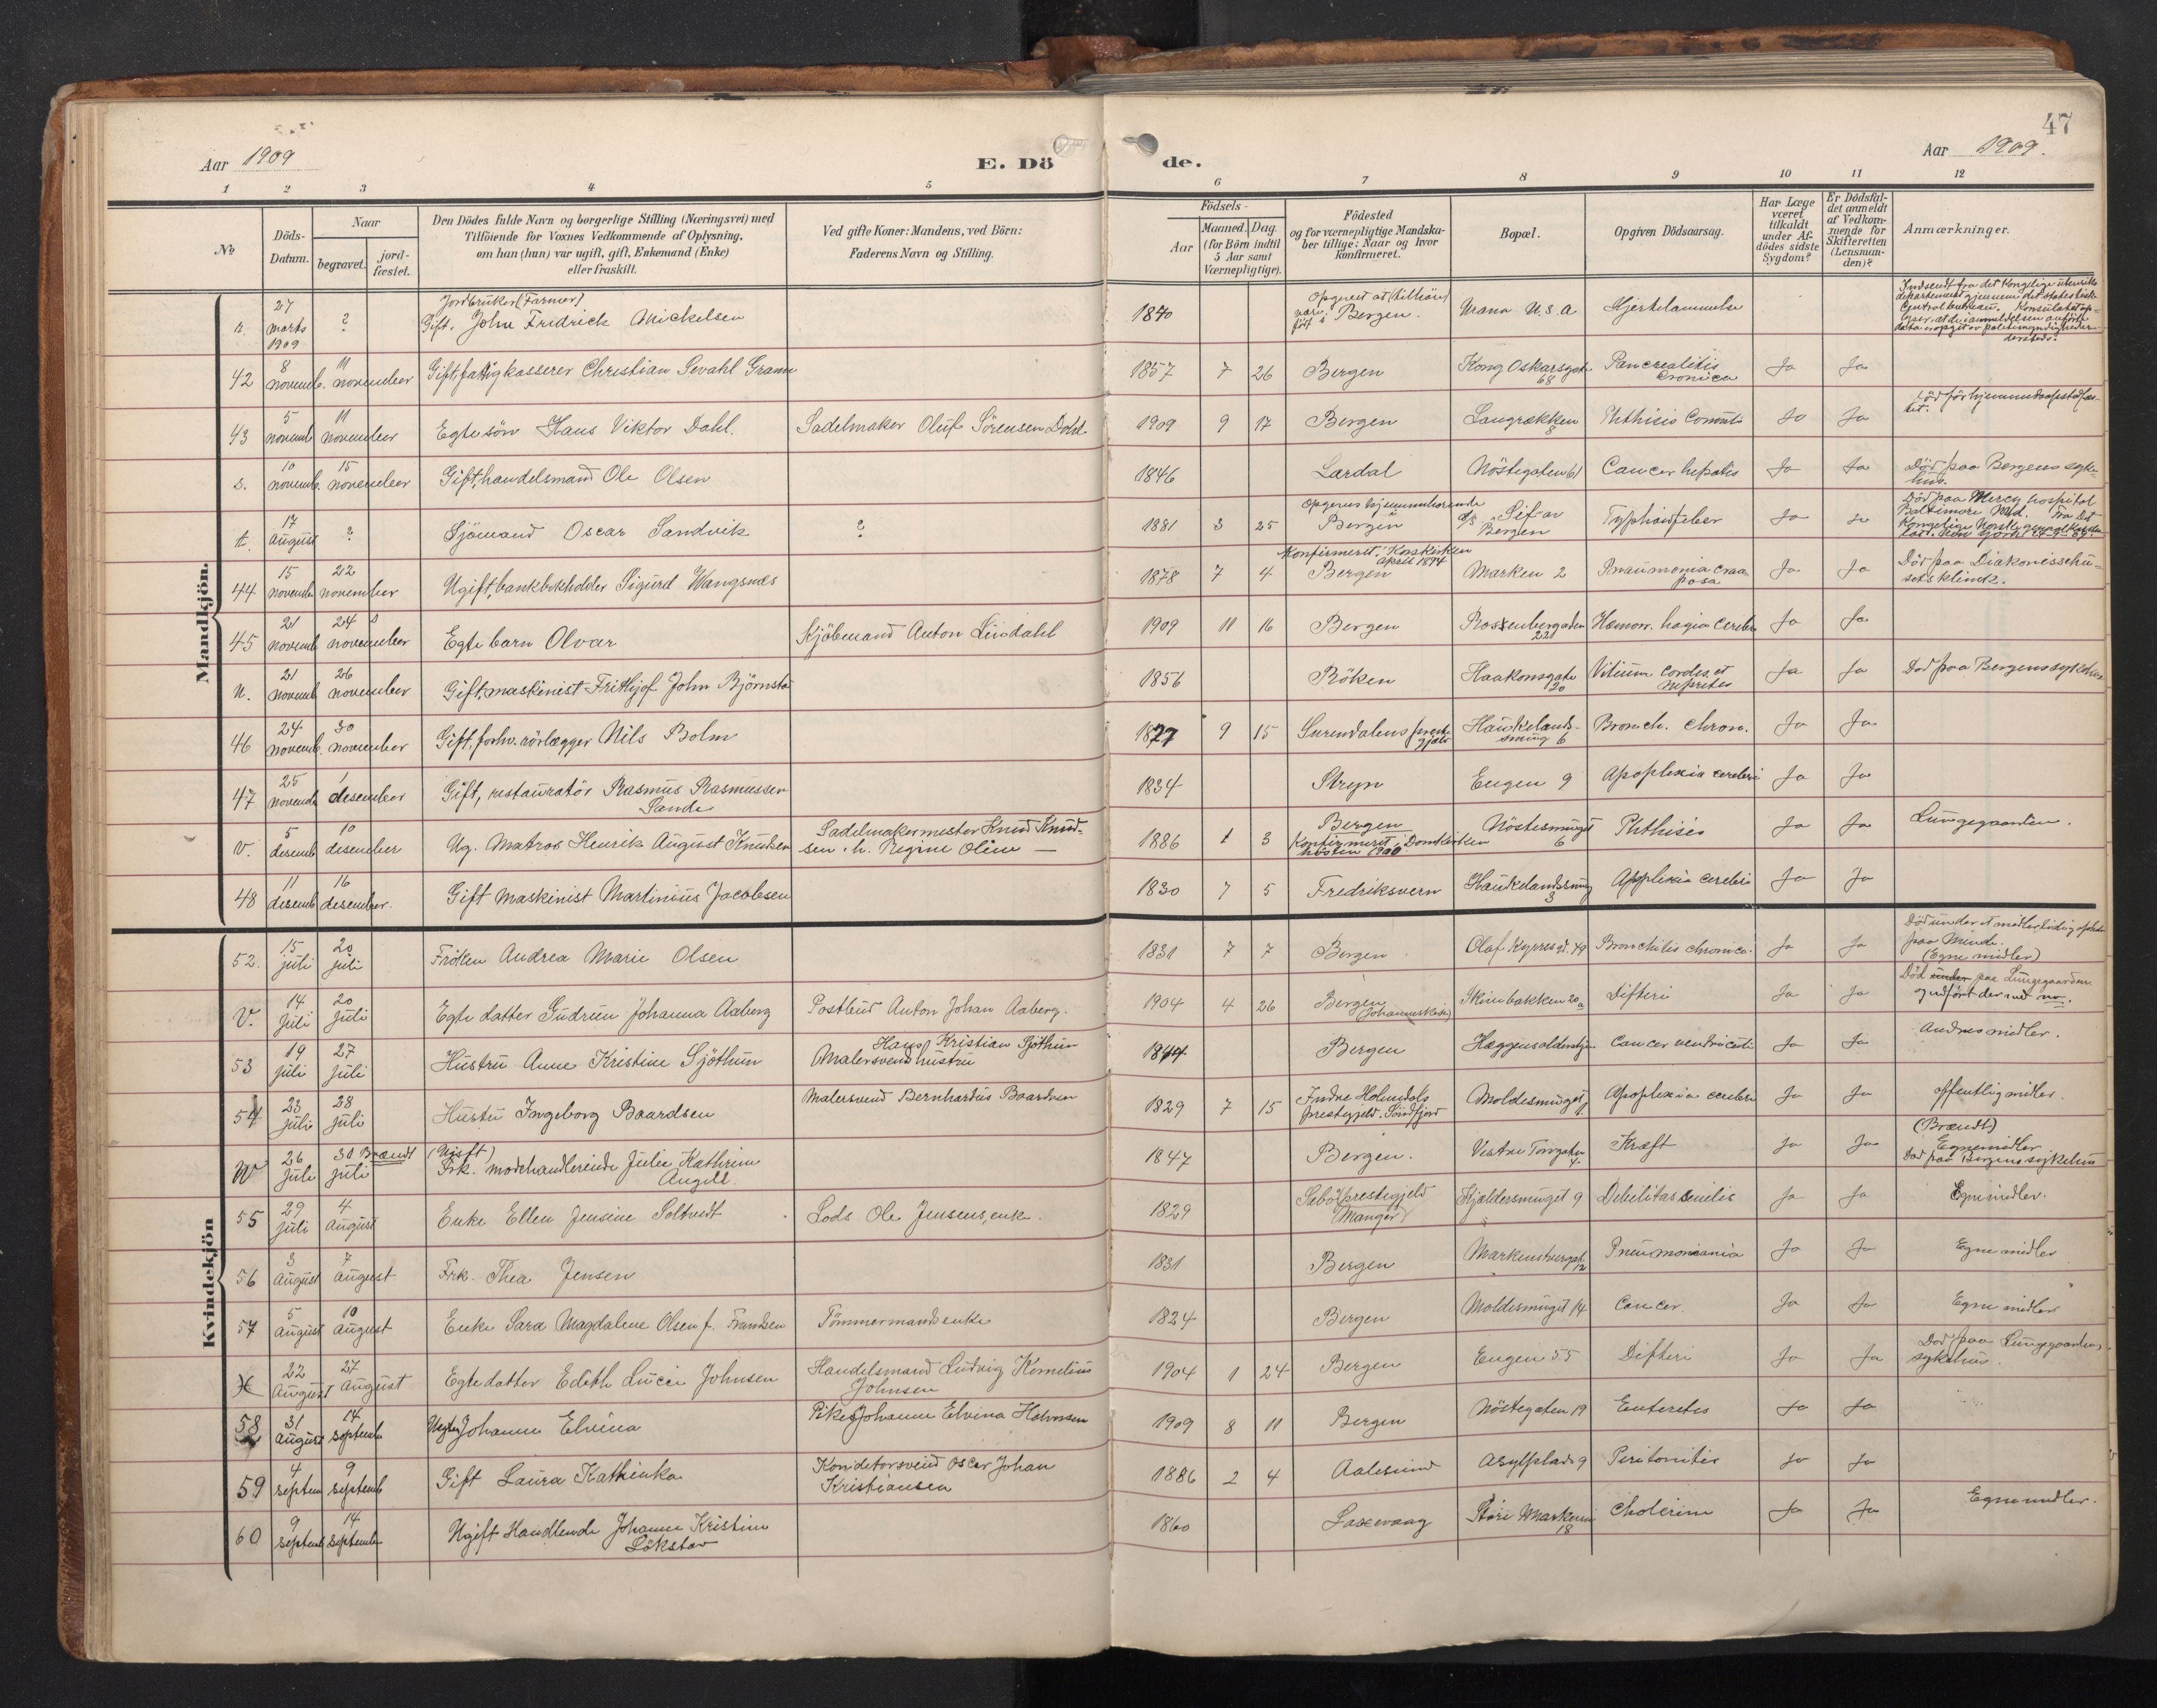 47
Aar 1909
E. Dö
de.
Aar 1909.
1 2 3 4 5
6 7 8 9 10 11 12
No
Döds-
Datum.
Naar
begravet.
jord-
fæstet.
Den Dödes fulde Navn og borgerlige Stilling (Næringsvei) med
Tilföiende for Voxnes Vedkommende af Oplysning,
om han (hun) var ugift, gift, Enkemand (Enke)
eller fraskilt.
Ved gifte Koner: Mandens, ved Börn:
Faderens Navn og Stilling.
Födsels-
Aar
Maaned. Dag.
(for Börn indtil
5 Aar samt
Værnepligtige).
Födested
og for værnepligtige Mandska-
ber tillige: Naar og hvor
konfirmeret.
Bopæl.
Opgiven Dödsaarsag.
Har Læge
været
tilkaldt
under Af-
dödes sidste
Sygdom?
Er Dödsfal-
det anmeldt
af Vedkom-
mende for
Skifteretten
(Lensman-
den)?
Anmærkninger.
Mandkjön.
27 marts 1909 ? Jordbruker (Farmer)
Gift. John Fridrick Mickelsen 1840 Bergen. U.S.A Hjertelammelse
42 8 novemb. 11 november Gift, fattigkasserer Christian Sevahl Gramm 1857 7 26 Bergen Kong Oskarsgate 68 Pancrealitis cronica Ja Ja
43 5 novemb 11 november Egte sön Hans Viktor Dahl. Sadelmaker Oluf Sörensen Dahl 1909 9 17 Bergen Langrækken 8 Phthisis Ja Ja
s. 10 novemb. 15 november Gift, handelsmand Ole Olsen 1846 Lærdal Nöstegaten 61 Cancer hepatis Ja Ja Död paa Bergens syke-
hus.
t. 17 August ? Sjömand Oscar Sandvik ? 1881 3 25 Opgives hjemmehörende i Bergen Bergen Typhoidfeber Ja Ja Död paa Mercy hospital
Baltimore Md.
44 15 novemb 22 november Ugift, bankbokholder Sigurd Wangsnes 1878 7 4 Konfirmeret i Korskirken April 1894 Bergen Marken 2 Pneumonia Ja Ja Död paa Diakonissehu-
sets klinik.
45 21 novemb 24 november Egte barn Olvar Kjöbmand Anton Lindahl 1909 11 16 Bergen Rosenbergsgaten 22 cerebri Ja Ja
u. 21 novemb 26 november Gift, maskinist Frithjof John Björnsta 1856 Röken Haakonsgate 20 Vitium cordis et Ja Ja Död paa Bergens sykehus
46 24 novemb. 30 november Gift, forhv. rörlægger Nils Bolm 1877 9 15 Surendalens preste-
gjeld Haukelands-
smug 6 Bronch. chron. Ja Ja
47 25 novemb 1 desember Gift, restauratör Rasmus Rasmussen
Sande 1834 Stryn Engen 9 Apoplexia cerebri Ja Ja
v. 5 desemb 10 desember Ug. Matros Henrik August Knudsen Sadelmakermester Knud Knud-
sen h. Regine Oline 1886 1 3 Bergen
Konfirmeret i Domkirken
hösten 1900 Nöstesmuget 6 Phthisis Ja Ja Lungegaarden.
48 11 desemb 16 desember. Gift maskinist Martinius Jacobsen 1830 7 5 Fredriksvern Haukelandssmug 3 Apoplexia cerebri Ja Ja
Kvindekjön
52. 15 juli 20 juli Fröken Andrea Marie Olsen 1831 7 7 Bergen Olaf Kyrres gt. 49 Bronchitis chronica. Ja Ja paa Minde.
(Egne midler)
V. 14 juli 20 juli Egte datter Gudrun Johanna Aaberg Postbud Anton Johan Aaberg. 1904 4 26 Bergen
(Johanneskirken) 20 a Difteri Ja Ja Död under paa Lungegaarden
53 19 juli 27 juli Hustru Anne Kristine Sjöthun Hans Kristian Sjöthun
Malersvend hustru 1844 Bergen Cancer ventriculi Ja Ja Andres midler.
54 23 juli 28 juli Hustru Ingeborg Baardsen Malersvend Bernhardus Baardsen 1829 7 15 Indre Holmedals
prestegjeld. Söndfjord Moldesmuget 1 Apoplexia cerebri Ja Ja offentlig midler.
W 26 juli 30 juli Brændt (Ugift)
Frk. modehandlerinde Julie Kathrine
Angell. 1847 Bergen. Vestre Torvgaten 4 Kræft Ja Ja (Brændt)
Egne midler
Död paa Bergens sykehus
55 29 juli 4 August Enke Ellen Jensine Soltvedt Lods Ole Jensens enke. 1829 Sæbö prestegjeld
(Manger) Kjeldersmuget 9 Debilitas senilis Ja Ja Egne midler.
56 3 August 7 August Frk. Thea Jensen 1831 Bergen 12 Ja Ja Egne midler
57 5 August 10 August Enke Sara Magdalene Olsen f. Frantsen Tömmermands enke 1824 Bergen Moldesmuget 14 Cancer. Ja Ja Egne midler
X 22 August 27 August Egte datter Edith Lucie Johnsen Handelsmand Ludvig Kornelius
Johnsen 1904 1 24 Bergen Engen 55 Difteri Ja Ja Död paa Lungegaardens
sykehus.
58 31 August 14 septemb Uegte Johanne Elvina Pike Johanne Elvina Halvorsen 1909 8 11 Bergen Nöstegaten 19 Enteritis Ja Ja
59 4 septem 9 septemb Gift Laura Kathinka Konditorsvend Oscar Johan
Kristiansen 1886 2 4 Aalesund Asylplads 9 Peritonitis Ja Ja
60 9 septemb 14 september Ugift Handlende Johanne Kristine
Lökstav 1860 Laxevaag Store Marken 18 Cholerine Ja Ja Egne midler.